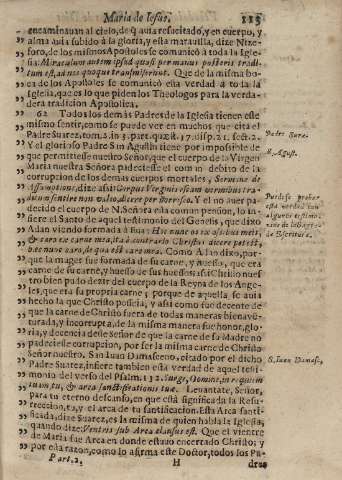 Maria de Iesus. 113
encaminauan al cielo, de q̃ auia resucitado, y en cuerpo, y
alma auia subido à la gloria, y esta marauilla, dize Nize-
foro, de los mismos Apostoles se comunicó à toda la Igle-
sia: Miraculum autem ipsud quasi per manus posteris tradi-
tum est, ad nos quoque transmiserunt. Que de la misma bo-
ca de los Apostoles se comunicó esta verdad à toda la
Iglesia, que es lo que piden los Theologos para la verda-
dera tradicion Apostolica.
62 Todos los demas Padres de la Iglesia tienen este
mismo sentir, como se puede ver en muchos que cita el
Padre Suarez, tom. 2. in 3. part. quæst. disp. 21. sect. 2.
Y el glorioso Padre San Agustin tiene por impossible de
que permitiesse nuestro Señor, que el cuerpo de la Virgen
Maria nuestra Señora padeciesse el comun debito de la
corrupcion de los demas cuerpos mortales, Sermone de
Assumptione, dize assi: Corpus Virginis escam vermibus tra-
ditum sentire non valeo, dicere pertimesco. Y el no auer pa-
decido el cuerpo de N. Señora esta comun pension, lo in-
fiere el Santo de aquel testimonio del Genesis, que dixo
Adan viendo formada à Eua: Hoc nunc os ex ossibus meis,
& caro ex carne mea, ita è contrario Christus dicere potest,
hæc nunc caro, de qua est caro mea. Como Adan dixo, por-
que la muger fue formada de su carne, y huesso, que era
carne de su carne, y huesso de sus huessos: assi Christo nues-
tro bien pudo dezir del cuerpo de la Reyna de los Ange-
les, que era su propria carne; porque de aquella se auia
hecho la que Christo posseia, y assi como fue decente de
que la carne de Christo fuera de todas maneras bienauen-
turada, y incorrupta, de la misma manera fue honor, glo-
ria, y decencia deste Señor de que la carne de su Madre no
padeciesse corrupcion, por ser la misma carne de Christo
Señor nuestro. San Iuan Damasceno, citado por el dicho
Padre Suarez, infiere tambien esta verdad de aquel testi-
monio del verso del Psalm. 131. Surge, Domine, in requiem
tuam, tu, & arca sanctificationis tuæ. Leuantate, Señor,
para tu eterno descanso, en que està significada la Resu-
rreccion, tu, y el arca de tu santificacion. Esta Arca santi-
ficada, dize Suarez, es la misma de quien habla la Iglesia,
quando dize: Ventris sub Arca clausus est. Que el vientre
de Maria fue Arca en donde estauo encerrado Christo; y
por esta razon, como lo afirma este Doctor, todos los Pa-
Part. 2. H dres
Padre Sura.
S. Agust.
Puedese prober
esta verdad con
algunos testimo-
nios de la Sagra-
da Escritura.
S. Iuan Damasc.